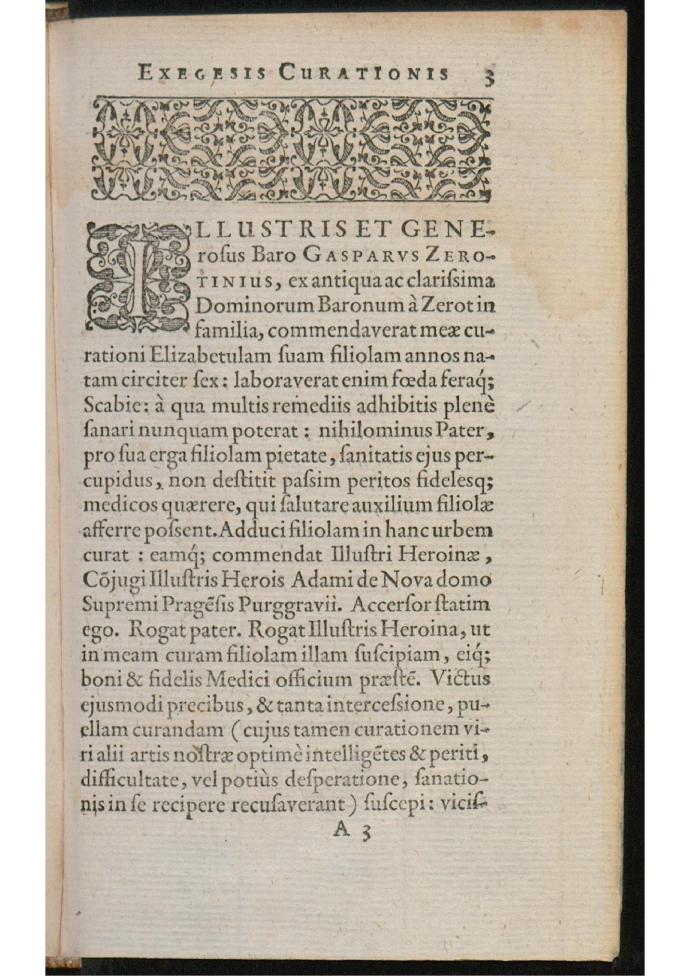 EXEGESIS CURATIONIS 3
ILLUSTRIS ET GENE-
roſus Baro GASPARVS ZERO-
TINIUS, ex antiqua ac clariſsima
Dominorum Baronum à Zerotin
familia, commendaverat meæ cu-
rationi Elizabetulam ſuam filiolam annos na-
tam circiter ſex: laboraverat enim fœda feraq́;
Scabie: à qua multis remediis adhibitis plenè
ſanari nunquam poterat: nihilominus Pater,
pro ſua erga filiolam pietate, ſanitatis ejus per-
cupidus, non deſtitit paſsim peritos fidelesq;
medicos quærere, qui ſalutare auxilium filiolæ
afferre poſsent. Adduci filiolam in hanc urbem
curat: eamq́; commendat Illuſtri Heroinæ,
Cõjugi Illuſtris Herois Adami de Nova domo
Supremi Pragẽſis Purggravii. Accerſor ſtatim
ego. Rogat pater. Rogat Illuſtris Heroina, ut
in meam curam filiolam illam ſuſcipiam, eiq́;
boni & fidelis Medici officium præſtẽ. Victus
ejusmodi precibus, & tanta interceſsione, pu-
ellam curandam (cujus tamen curationem vi-
ri alii artis noſtræ optimè intelligẽtes & periti,
difficultate, vel potiùs deſperatione, ſanatio-
nis in ſe recipere recuſaverant) ſuſcepi: viciſ-
A 3